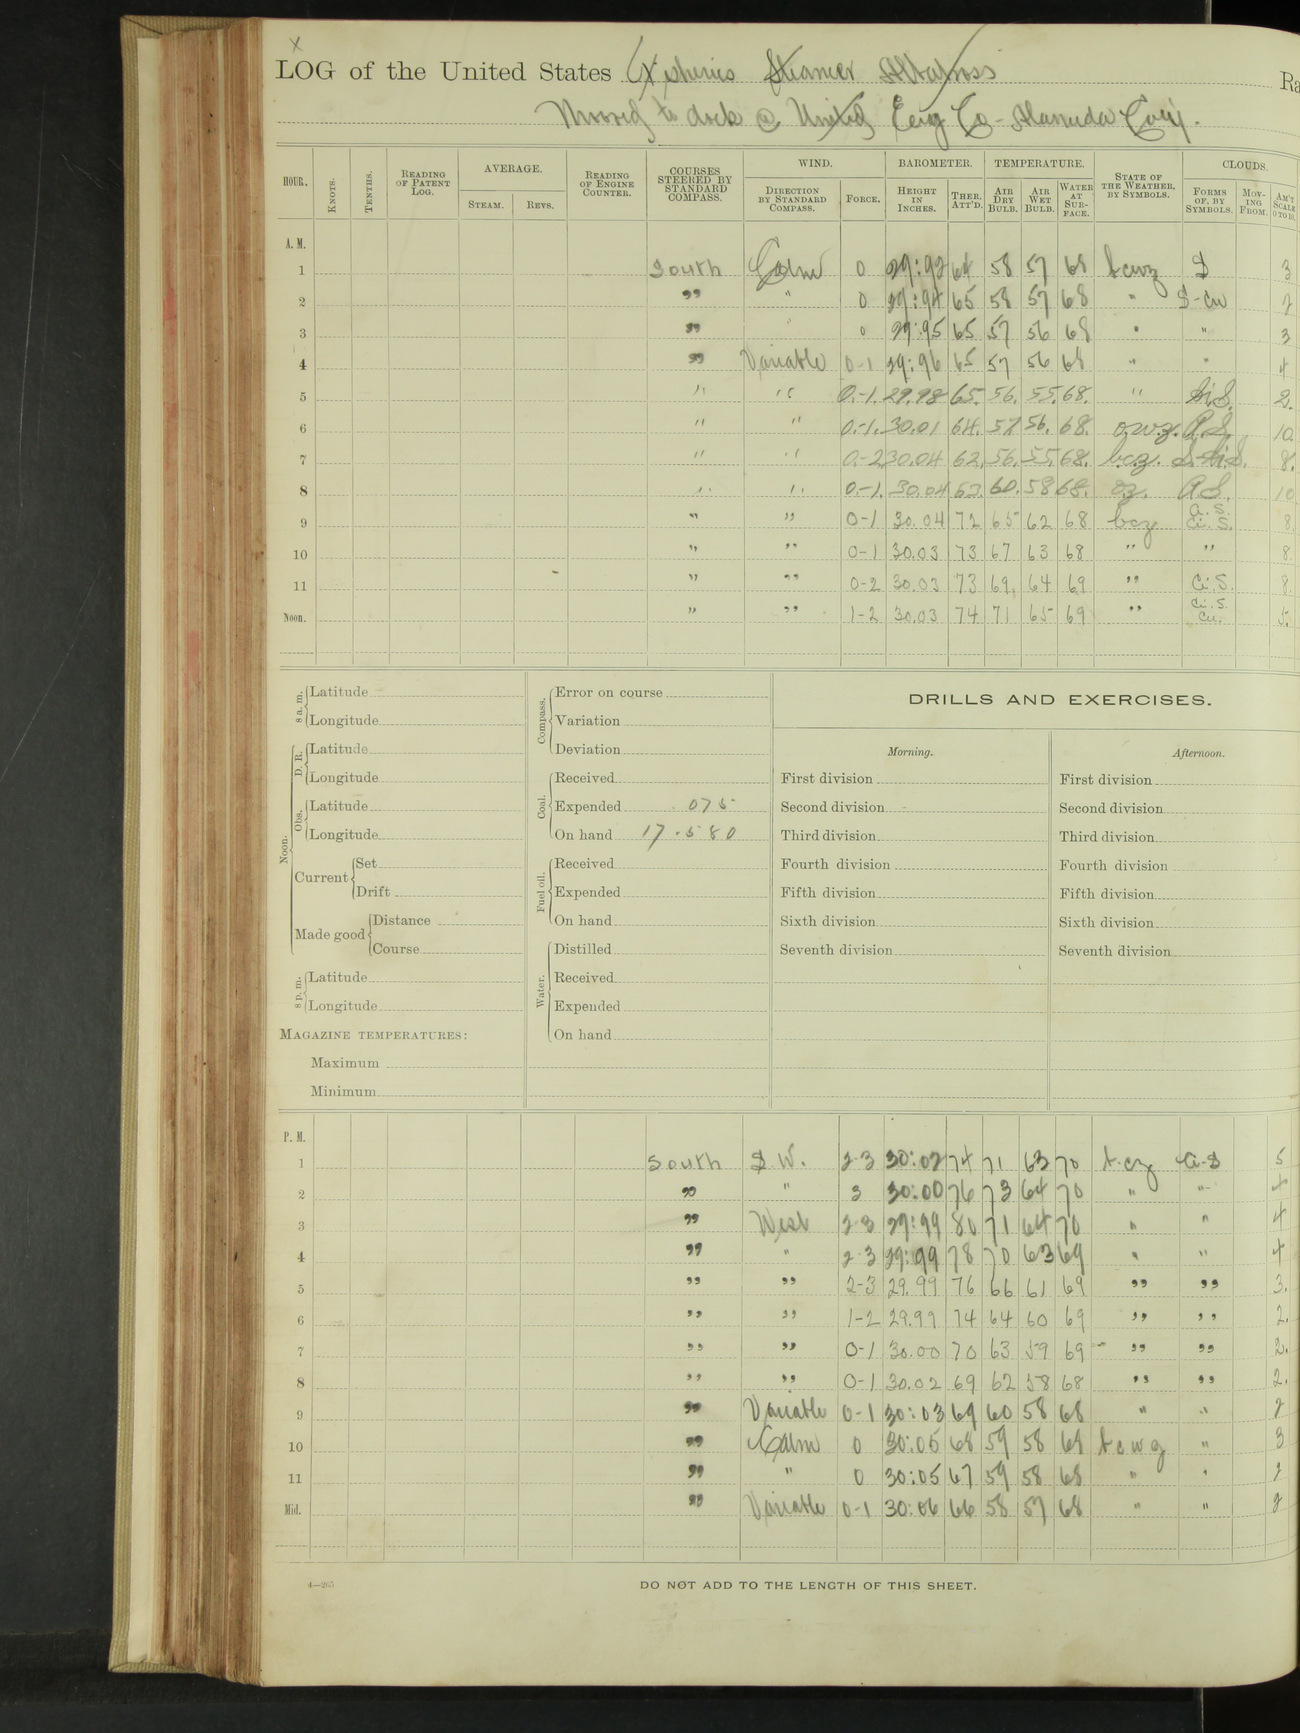 x
LOG of the United States Fisheries Steamer Albatross Ra
Moored to dock @ United Eng Co - Alameda Cal.
HOUR. KNOTS. TENTHS. READING OF PATENT LOG. AVERAGE. STEAM. REVS. READING OF ENGINE COUNTER. COURSES STEERED BY STANDARD COMPASS. WIND. DIRECTION BY STANDARD COMPASS. FORCE. BAROMETER. HEIGHT IN INCHES. THER. ATT'D. TEMPERATURE. AIR DRY BULB. AIR WET BULB. WATER AT SURFACE. STATE OF THE WEATHER, BY SYMBOLS. CLOUDS. FORMS OF, BY SYMBOLS. MOVING FROM. AM'T SCALE 0 TO 10.
A. M.
1 South Calm 0 29:93 64 58 57 68 bcwz S 3
2 " " 0 29:94 65 58 57 68 " S-cu 2
3 " " 0 29:95 65 57 56 68 " " 3
4 " Variable 0-1 29:96 65 57 56 68 " " 4
5 " " 0.-1. 29.98 65. 56. 55. 68. " 2.
6 " " 0.-1. 30.01 64. 57 56. 68. o.w.z. A.S. 10
7 " " 0.-2 30.04 62. 56. 55. 68. bcz. 8.
8 " " 0.-1. 30.04 63. 60. 58 68. oz. A.S. 10
9 " " 0-1 30.04 72 65 62 68 bcz a.s. Ci.S. 8.
10 " " 0-1 30.03 73 67 63 68 " " 8.
11 " " 0-2 30.03 73 69. 64 69 " Ci.S. 8.
Noon. " " 1-2 30.03 74 71 65 69 " Ci.S. Cu. 5.
8 a.m. Latitude
Longitude
Noon.
D. R. Latitude
Longitude
Obs. Latitude
Longitude
Current Set
Drift
Made good Distance
Course
8 p.m. Latitude
Longitude
MAGAZINE TEMPERATURES:
Maximum
Minimum
Compass. Error on course
Variation
Deviation
Coal. Received
Expended .075
On hand 17.580
Fuel oil. Received
Expended
On hand
Water. Distilled
Received
Expended
On hand
DRILLS AND EXERCISES.
Morning.
First division
Second division
Third division
Fourth division
Fifth division
Sixth division
Seventh division
Afternoon.
First division
Second division
Third division
Fourth division
Fifth division
Sixth division
Seventh division
P. M.
1 South S.W. 2-3 30:02 74 71 63 70 b.cz A-S 5
2 " " 3 30:00 76 73 64 70 " " 4
3 " West 2-3 29:99 80 71 64 70 " " 4
4 " " 2-3 29:99 78 70 63 69 " " 4
5 " " 2-3 29.99 76 66 61 69 " " 3.
6 " " 1-2 29.99 74 64 60 69 " " 2.
7 " " 0-1 30.00 70 63 59 69 " " 2.
8 " " 0-1 30.02 69 62 58 68 " " 2.
9 " Variable 0-1 30:03 69 60 58 68 " " 2
10 " Calm 0 30:05 68 59 58 68 bcwz " 3
11 " " 0 30:05 67 59 58 68 " " 2
Mid. " Variable 0-1 30:06 66 58 57 68 " " 2
4—265
DO NOT ADD TO THE LENGTH OF THIS SHEET.